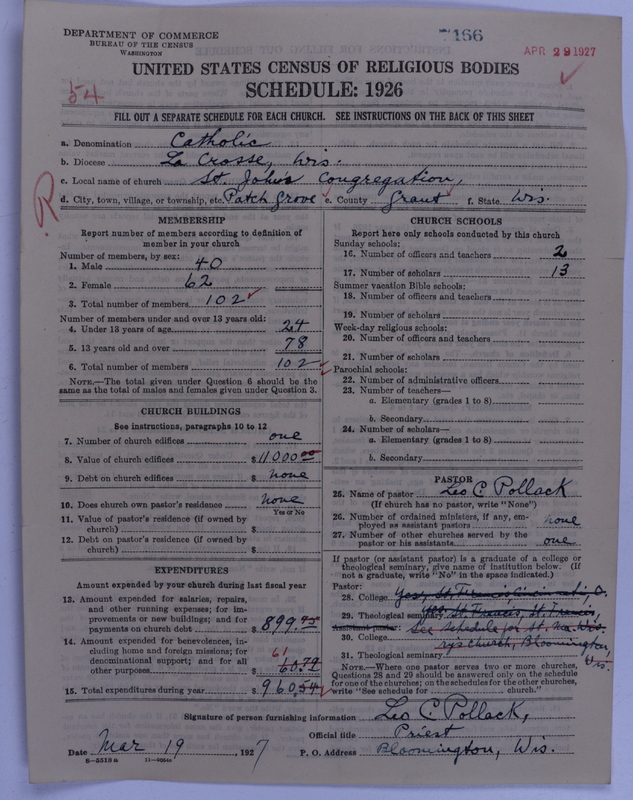 DEPARTMENT OF COMMERCE
BUREAU OF THE CENSUS
WASHINGTON
7166
APR 29 1927
UNITED STATES CENSUS OF RELIGIOUS BODIES
SCHEDULE: 1926
54
FILL OUT A SEPARATE SCHEDULE FOR EACH CHURCH. SEE INSTRUCTIONS ON THE BACK OF THIS SHEET
a. Denomination Catholic
b. Diocese La Crosse, Wis.
c. Local name of church St. John's Congregation,
d. City, town, village, or township, etc. Patch Grove e. County Grant f. State Wis.
R
MEMBERSHIP
Report number of members according to definition of
member in your church
Number of members, by sex:
1. Male 40
2. Female 62
3. Total number of members 102
Number of members under and over 13 years old:
4. Under 13 years of age 24
5. 13 years old and over 78
6. Total number of members 102
NOTE.—The total given under Question 6 should be the
same as the total of males and females given under Question 3.
CHURCH BUILDINGS
See instructions, paragraphs 10 to 12
7. Number of church edifices one
8. Value of church edifices $11000.00
9. Debt on church edifices $ none
10. Does church own pastor's residence none
Yes or No
11. Value of pastor's residence (if owned by
church) $
12. Debt on pastor's residence (if owned by
church) $
EXPENDITURES
Amount expended by your church during last fiscal year
13. Amount expended for salaries, repairs,
and other running expenses; for im-
provements or new buildings; and for
payments on church debt $ 899.75
14. Amount expended for benevolences, in-
cluding home and foreign missions; for
denominational support; and for all
other purposes $ 61
60.79
15. Total expenditures during year $ 960.54
CHURCH SCHOOLS
Report here only schools conducted by this church
Sunday schools:
16. Number of officers and teachers 2
17. Number of scholars 13
Summer vacation Bible schools:
18. Number of officers and teachers
19. Number of scholars
Week-day religious schools:
20. Number of officers and teachers
21. Number of scholars
Parochial schools:
22. Number of administrative officers
23. Number of teachers—
a. Elementary (grades 1 to 8)
b. Secondary
24. Number of scholars—
a. Elementary (grades 1 to 8)
b. Secondary
PASTOR
25. Name of pastor Leo C. Pollack
(If church has no pastor, write "None")
26. Number of ordained ministers, if any, em-
ployed as assistant pastors none
27. Number of other churches served by the
pastor or his assistants one
If pastor (or assistant pastor) is a graduate of a college or
theological seminary, give name of institution below. (If
not a graduate, write "No" in the space indicated.)
Pastor:
28. College Yes, St. Francis Cincinnati, O.
29. Theological seminary Yes St. Francis, St. Francis,
Assistant pastor: See schedule for St. Ma Wis.
30. College ry's church, Bloomington,
31. Theological seminary Wis.
NOTE.—Where one pastor serves two or more churches,
Questions 28 and 29 should be answered only on the schedule
for one of the churches; on the schedules for the other churches,
write "See schedule for church."
Signature of person furnishing information Leo C. Pollack,
Official title Priest
Date Mar 19, 1927
P. O. Address Bloomington, Wis.